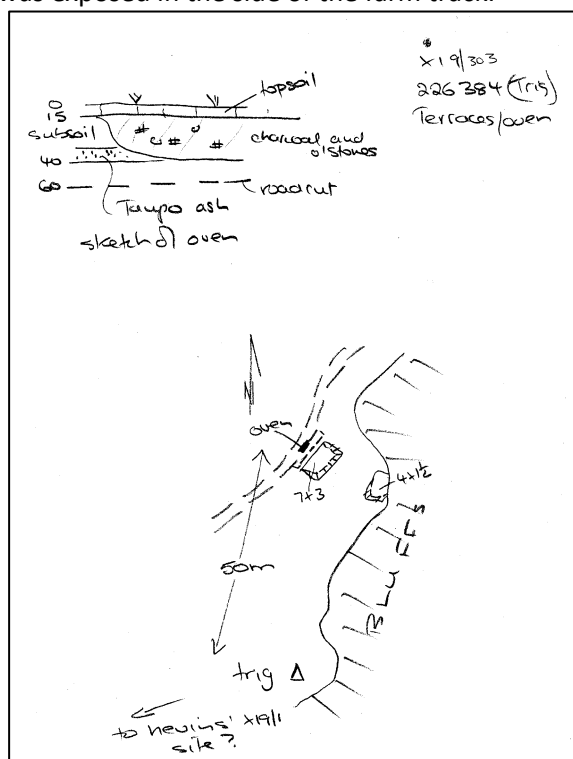 was exposed in the side of the farm track.
X19/303
226384 (Trig)
Terraces/oven
topsoil
0
15
subsoil
charcoal and
o'stones
40
60
roadcut
Taupo ash
sketch of oven
N
oven
7x3
4x1½
50m
BLUFFS
trig
to nevins' X19/1
site?